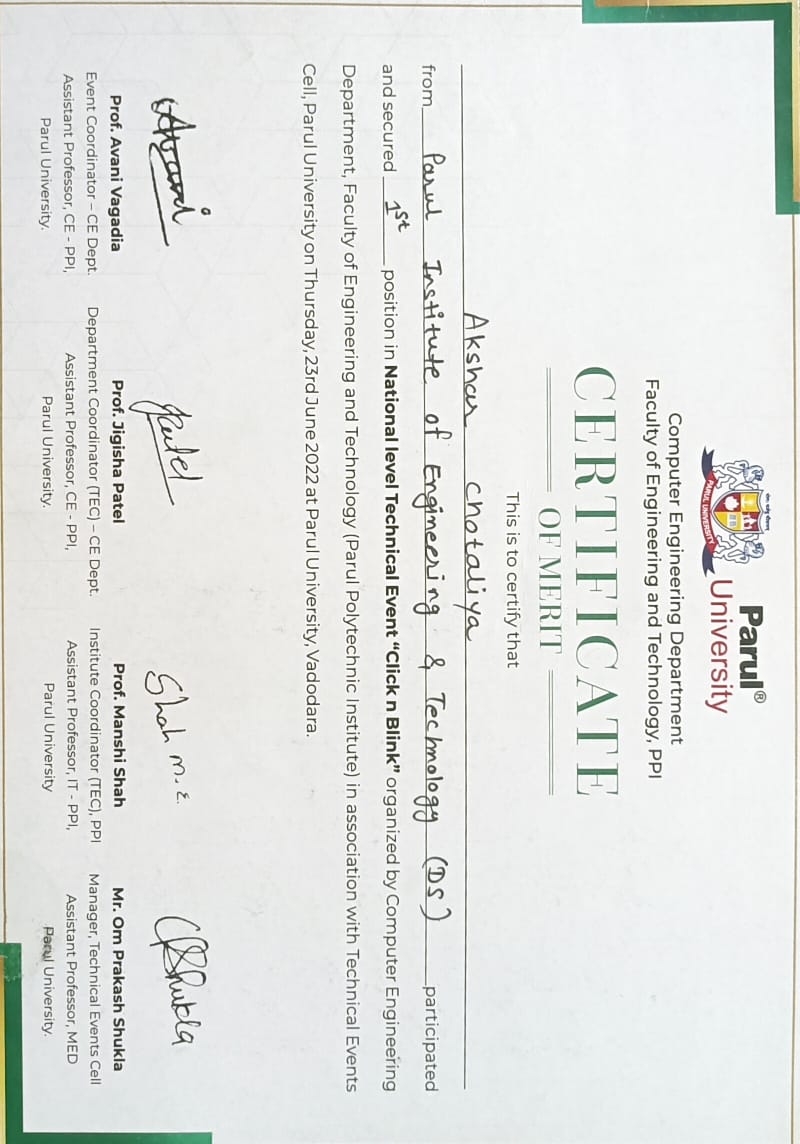 Parul®
University
PARUL UNIVERSITY
Computer Engineering Department
Faculty of Engineering and Technology, PPI
CERTIFICATE
OF MERIT
This is to certify that
Akshar Chotaliya
from Parul Institute of Engineering & Technology (DS) participated
and secured 1st position in National level Technical Event “Click n Blink” organized by Computer Engineering
Department, Faculty of Engineering and Technology (Parul Polytechnic Institute) in association with Technical Events
Cell, Parul University on Thursday, 23rd June 2022 at Parul University, Vadodara.
Shah M. E.
Prof. Avani Vagadia
Event Coordinator – CE Dept.
Assistant Professor, CE - PPI,
Parul University.
Prof. Jigisha Patel
Department Coordinator (TEC) – CE Dept.
Assistant Professor, CE - PPI,
Parul University.
Prof. Manshi Shah
Institute Coordinator (TEC), PPI
Assistant Professor, IT - PPI,
Parul University
Mr. Om Prakash Shukla
Manager, Technical Events Cell
Assistant Professor, MED
Parul University.